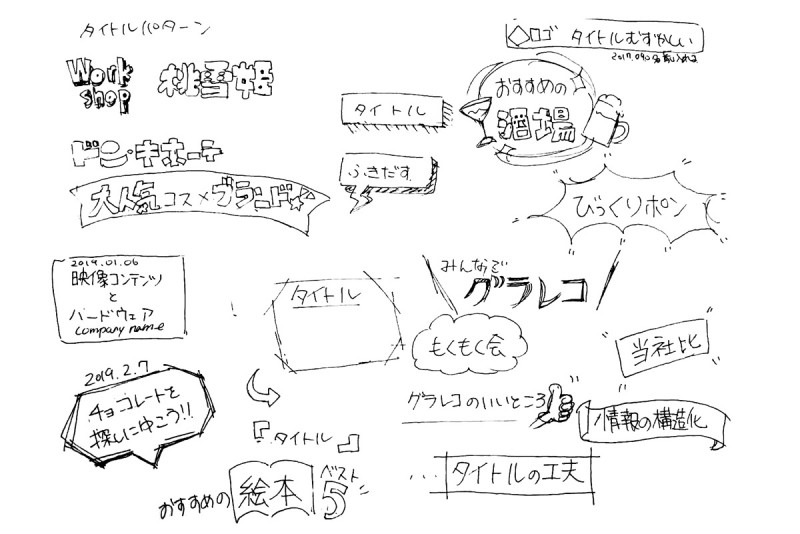 タイトルパターン
Work
shop
桃雪姫
ドン・キホーテ
大人気コスメブランド
タイトル
ふきだす
ロゴ タイトルむずかしい
おすすめの
酒場
びっくりポン
2019.01.06
映像コンテンツ
と
ハードウェア
company name
タイトル
みんなで
グラレコ
もくもく会
当社比
2019.2.7
チョコレートを
探しにゆこう!!
グラレコのいいところ
情報の構造化
『タイトル』
おすすめの
絵本
ベスト
5
タイトルの工夫